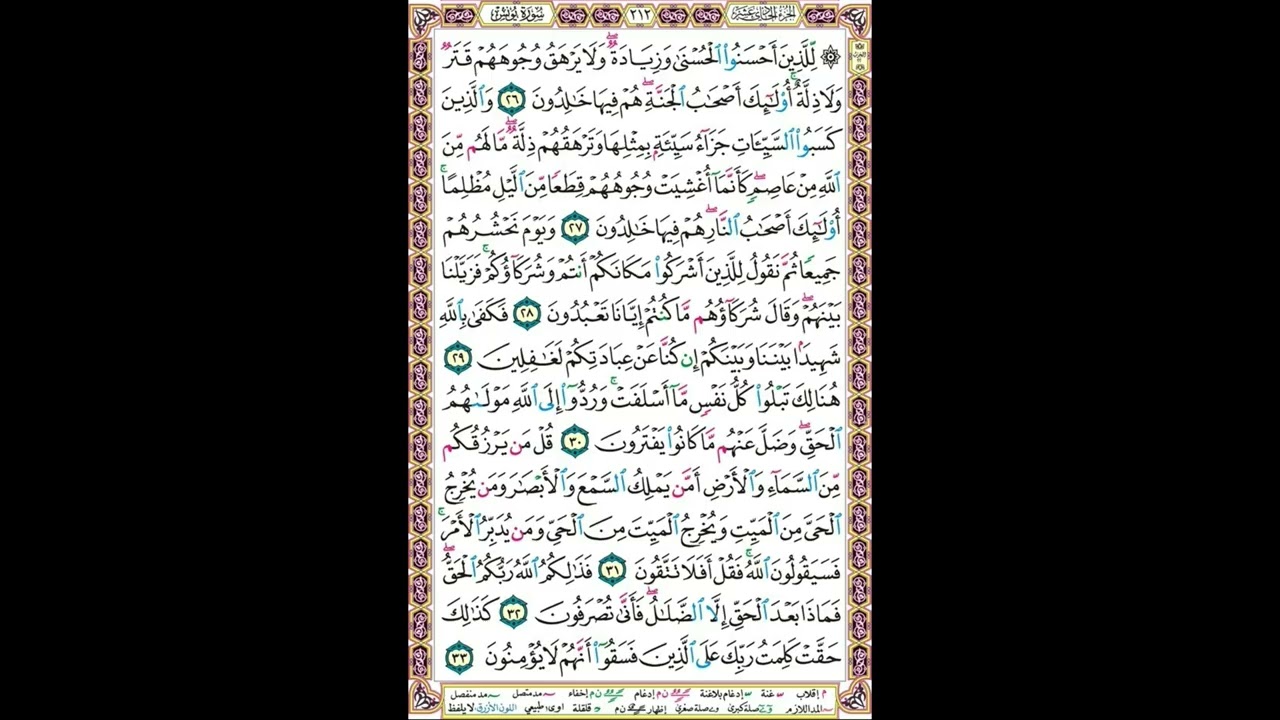 الجزء الحادي عشر ٢١٢ سورة يونس
۞ لِّلَّذِينَ أَحْسَنُوا۟ ٱلْحُسْنَىٰ وَزِيَادَةٌ ۖ وَلَا يَرْهَقُ وُجُوهَهُمْ قَتَرٌ
وَلَا ذِلَّةٌ ۚ أُو۟لَـٰٓئِكَ أَصْحَـٰبُ ٱلْجَنَّةِ ۖ هُمْ فِيهَا خَـٰلِدُونَ ٢٦ وَٱلَّذِينَ
كَسَبُوا۟ ٱلسَّيِّـَٔاتِ جَزَآءُ سَيِّئَةٍۭ بِمِثْلِهَا وَتَرْهَقُهُمْ ذِلَّةٌ ۖ مَّا لَهُم مِّنَ
ٱللَّهِ مِنْ عَاصِمٍ ۖ كَأَنَّمَآ أُغْشِيَتْ وُجُوهُهُمْ قِطَعًا مِّنَ ٱلَّيْلِ مُظْلِمًا ۚ
أُو۟لَـٰٓئِكَ أَصْحَـٰبُ ٱلنَّارِ ۖ هُمْ فِيهَا خَـٰلِدُونَ ٢٧ وَيَوْمَ نَحْشُرُهُمْ
جَمِيعًا ثُمَّ نَقُولُ لِلَّذِينَ أَشْرَكُوا۟ مَكَانَكُمْ أَنتُمْ وَشُرَكَآؤُكُمْ ۚ فَزَيَّلْنَا
بَيْنَهُمْ ۖ وَقَالَ شُرَكَآؤُهُم مَّا كُنتُمْ إِيَّانَا تَعْبُدُونَ ٢٨ فَكَفَىٰ بِٱللَّهِ
شَهِيدًۢا بَيْنَنَا وَبَيْنَكُمْ إِن كُنَّا عَنْ عِبَادَتِكُمْ لَغَـٰفِلِينَ ٢٩
هُنَالِكَ تَبْلُوا۟ كُلُّ نَفْسٍ مَّآ أَسْلَفَتْ ۚ وَرُدُّوٓا۟ إِلَى ٱللَّهِ مَوْلَىٰهُمُ
ٱلْحَقِّ ۖ وَضَلَّ عَنْهُم مَّا كَانُوا۟ يَفْتَرُونَ ٣٠ قُلْ مَن يَرْزُقُكُم
مِّنَ ٱلسَّمَآءِ وَٱلْأَرْضِ أَمَّن يَمْلِكُ ٱلسَّمْعَ وَٱلْأَبْصَـٰرَ وَمَن يُخْرِجُ
ٱلْحَىَّ مِنَ ٱلْمَيِّتِ وَيُخْرِجُ ٱلْمَيِّتَ مِنَ ٱلْحَىِّ وَمَن يُدَبِّرُ ٱلْأَمْرَ ۚ
فَسَيَقُولُونَ ٱللَّهُ ۚ فَقُلْ أَفَلَا تَتَّقُونَ ٣١ فَذَٰلِكُمُ ٱللَّهُ رَبُّكُمُ ٱلْحَقُّ ۖ
فَمَاذَا بَعْدَ ٱلْحَقِّ إِلَّا ٱلضَّلَـٰلُ ۖ فَأَنَّىٰ تُصْرَفُونَ ٣٢ كَذَٰلِكَ
حَقَّتْ كَلِمَتُ رَبِّكَ عَلَى ٱلَّذِينَ فَسَقُوٓا۟ أَنَّهُمْ لَا يُؤْمِنُونَ ٣٣
م إقلاب غنة إدغام بلاغنة ن م إدغام ن م إخفاء مد متصل مد منفصل
المد اللازم صلة كبرى صلة صغرى إظهار ن م قلقلة اوى: طبيعي اللون الأزرق لا يلفظ